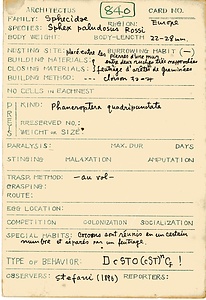 ARCHITECTUS 840 CARD NO.
FAMILY: Sphecidae REGION: Europe
SPECIES: Sphex paludosus Rossi
BODY WEIGHT BODY-LENGTH 22-28mm.
NESTING SITE: placé entre les BURROWING HABIT (-)
BUILDING MATERIALS: pierres d'un mur
CLOSING MATERIALS: feutrage d'arêtes de graminées
BUILDING METHOD: cloison
NO CELLS IN EACH NEST
PREY
KIND: Phaneroptera quadripunctata
PRESERVED NO.:
WEIGHT OR SIZE:
PARALYSIS: MAX. DUR DAYS
STINGING MALAXATION AMPUTATION
TRASP. METHOD: -au vol-
GRASPING:
ROUTE:
EGG LOCATION:
COMPETITION COLONIZATION SOCIALIZATION
SPECIAL HABITS: Cocons sont réunis en un certain
nombre et séparés par un feutrage.
TYPE OF BEHAVIOR:
OBSERVERS: Stefani (1896) REPORTERS: